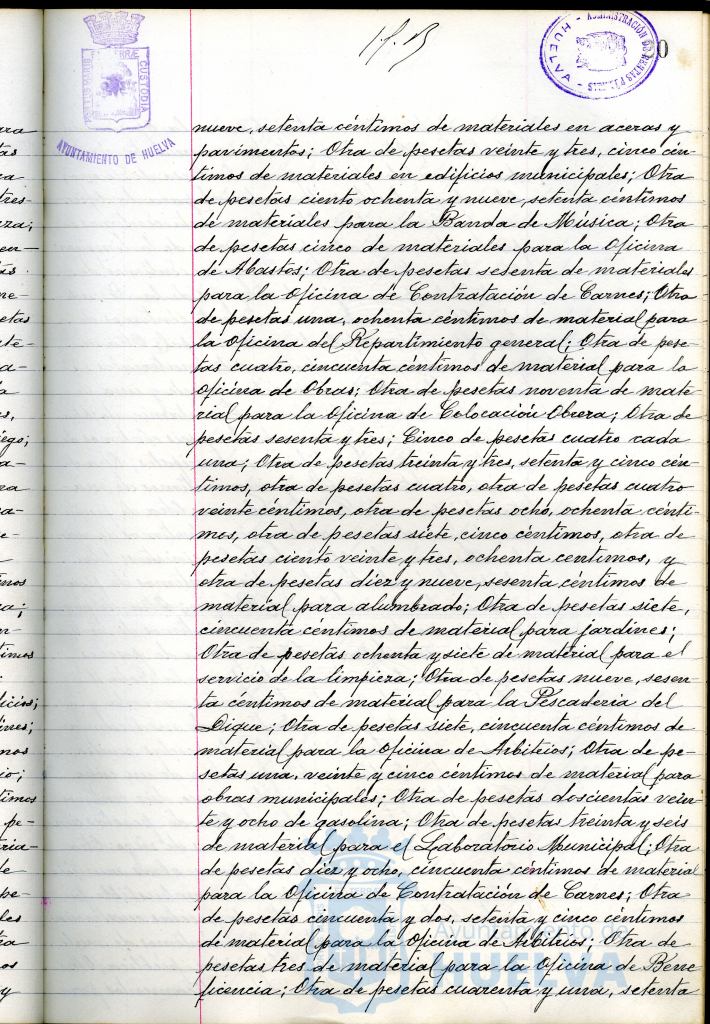 CUSTODIA
AYUNTAMIENTO DE HUELVA
ADMINISTRACIÓN DE RENTAS PÚBLICAS - HUELVA -
0
nueve, setenta céntimos de materiales en aceras y
pavimentos; Otra de pesetas veinte y tres, cinco cén-
timos de materiales en edificios municipales; Otra
de pesetas ciento ochenta y nueve, setenta céntimos
de materiales para la Banda de Música; Otra
de pesetas cinco de materiales para la Oficina
de Abastos; Otra de pesetas sesenta de materiales
para la Oficina de Contratación de Carnes; Otra
de pesetas una, ochenta céntimos de material para
la Oficina del Repartimiento general; Otra de pese-
tas cuatro, cincuenta céntimos de material para la
Oficina de Obras; Otra de pesetas noventa de mate-
rial para la Oficina de Colocación Obrera; Otra de
pesetas sesenta y tres; Cinco de pesetas cuatro cada
una; Otra de pesetas treinta y tres, setenta y cinco cén-
timos, otra de pesetas cuatro, otra de pesetas cuatro
veinte céntimos, otra de pesetas ocho, ochenta cénti-
mos, otra de pesetas siete, cinco céntimos, otra de
pesetas ciento veinte y tres, ochenta centimos, y
otra de pesetas diez y nueve, sesenta céntimos de
material para alumbrado; Otra de pesetas siete,
cincuenta céntimos de material para jardines;
Otra de pesetas ochenta y siete de material para el
servicio de la limpieza; Otra de pesetas nueve, sesen-
ta céntimos de material para la Pescadería del
Dique; Otra de pesetas siete, cincuenta céntimos de
material para la Oficina de Arbitrios; Otra de pe-
setas una, veinte y cinco céntimos de material para
obras municipales; Otra de pesetas doscientas vein-
te y ocho de gasolina; Otra de pesetas treinta y seis
de material para el Laboratorio Municipal; Otra
de pesetas diez y ocho, cincuenta céntimos de material
para la Oficina de Contratación de Carnes; Otra
de pesetas cincuenta y dos, setenta y cinco céntimos
de material para la Oficina de Arbitrios; Otra de
pesetas tres de material para la Oficina de Bene
ficencia; Otra de pesetas cuarenta y una, setenta
Ayuntamiento de
HUELVA